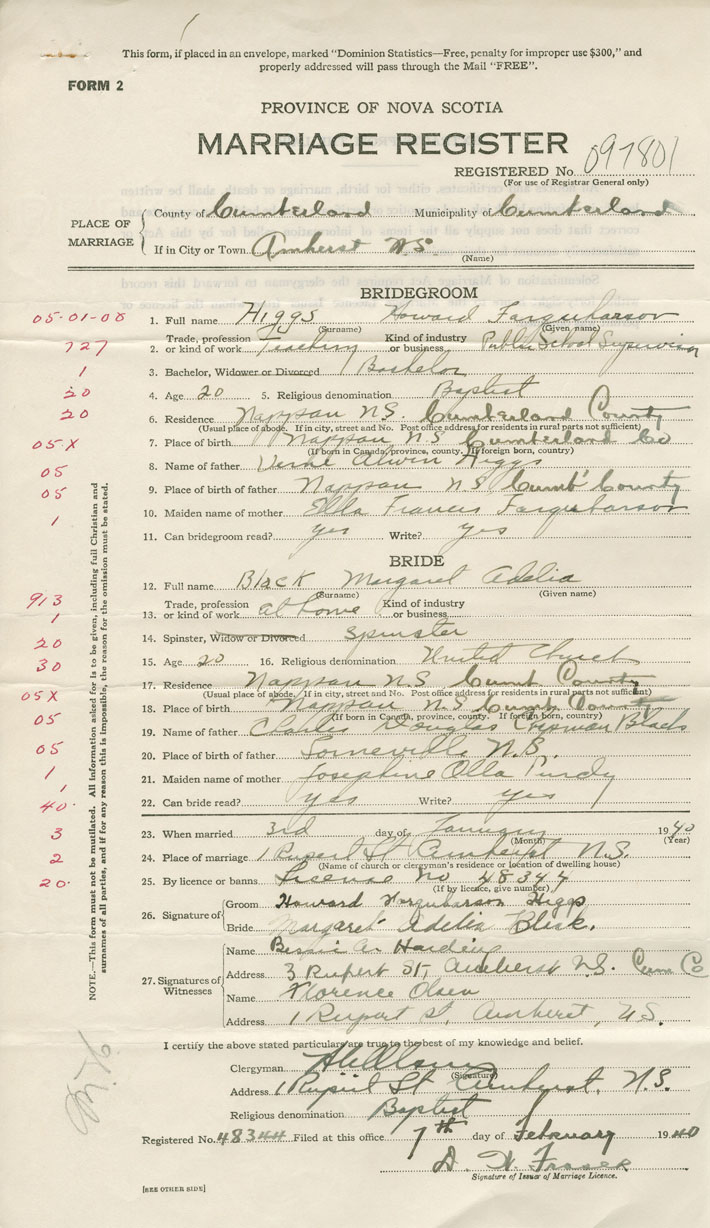 This form, if placed in an envelope, marked "Dominion Statistics—Free, penalty for improper use $300," and
properly addressed will pass through the Mail "FREE".
FORM 2
PROVINCE OF NOVA SCOTIA
MARRIAGE REGISTER
REGISTERED No. 097801
(For use of Registrar General only)
PLACE OF MARRIAGE
County of Cumberland Municipality of Cumberland
If in City or Town Amherst N S
(Name)
BRIDEGROOM
05-01-08
1. Full name Higgs Howard Farquharson
(Surname) (Given name)
727
2. Trade, profession or kind of work Teaching Kind of industry or business Public School Supervision
1
3. Bachelor, Widower or Divorced Bachelor
20
4. Age 20 5. Religious denomination Baptist
20
6. Residence Nappan N.S. Cumberland County
(Usual place of abode. If in city, street and No. Post office address for residents in rural parts not sufficient)
05X
7. Place of birth Nappan N S Cumberland Co
(If born in Canada, province, county. If foreign born, country)
05
8. Name of father Verne Alwin Higgs
05
9. Place of birth of father Nappan N S Cumb' County
1
10. Maiden name of mother Ella Francis Farquharson
11. Can bridegroom read? yes Write? yes
BRIDE
12. Full name Black Margaret Adelia
(Surname) (Given name)
913
13. Trade, profession or kind of work at home Kind of industry or business
1
14. Spinster, Widow or Divorced Spinster
20
15. Age 20 16. Religious denomination United Church
30
17. Residence Nappan N.S Cumb County
(Usual place of abode. If in city, street and No. Post office address for residents in rural parts not sufficient)
05X
18. Place of birth Nappan N.S Cumb County
(If born in Canada, province, county. If foreign born, country)
05
19. Name of father Charles Douglas Chipman Black
05
20. Place of birth of father N.B.
1
21. Maiden name of mother Josephine Olla Purdy
1
22. Can bride read? yes Write? yes
40.
23. When married 3rd day of January 1940
(Month) (Year)
3
24. Place of marriage 1 Rupert St Amherst N.S.
(Name of church or clergyman's residence or location of dwelling house)
2
25. By licence or banns License No 48344
(If by licence, give number)
20.
26. Signature of
Groom Howard Farquharson Higgs
Bride Margaret Adelia Black.
27. Signatures of Witnesses
Name Bessie Harding
Address 3 Rupert St, Amherst N.S. Cum Co
Name Florence Olsen
Address 1 Rupert St, Amherst, N.S.
NOTE.—This form must not be mutilated. All information asked for is to be given, including full Christian and
surnames of all parties, and if for any reason this is impossible, the reason for the omission must be stated.
I certify the above stated particulars are true to the best of my knowledge and belief.
Clergyman
(Signature)
Address 1 Rupert St Amherst, N.S.
Religious denomination Baptist
Registered No. 48344 Filed at this office 7th day of February 1940
D. W. Fraser
Signature of Issuer of Marriage Licence.
[SEE OTHER SIDE]